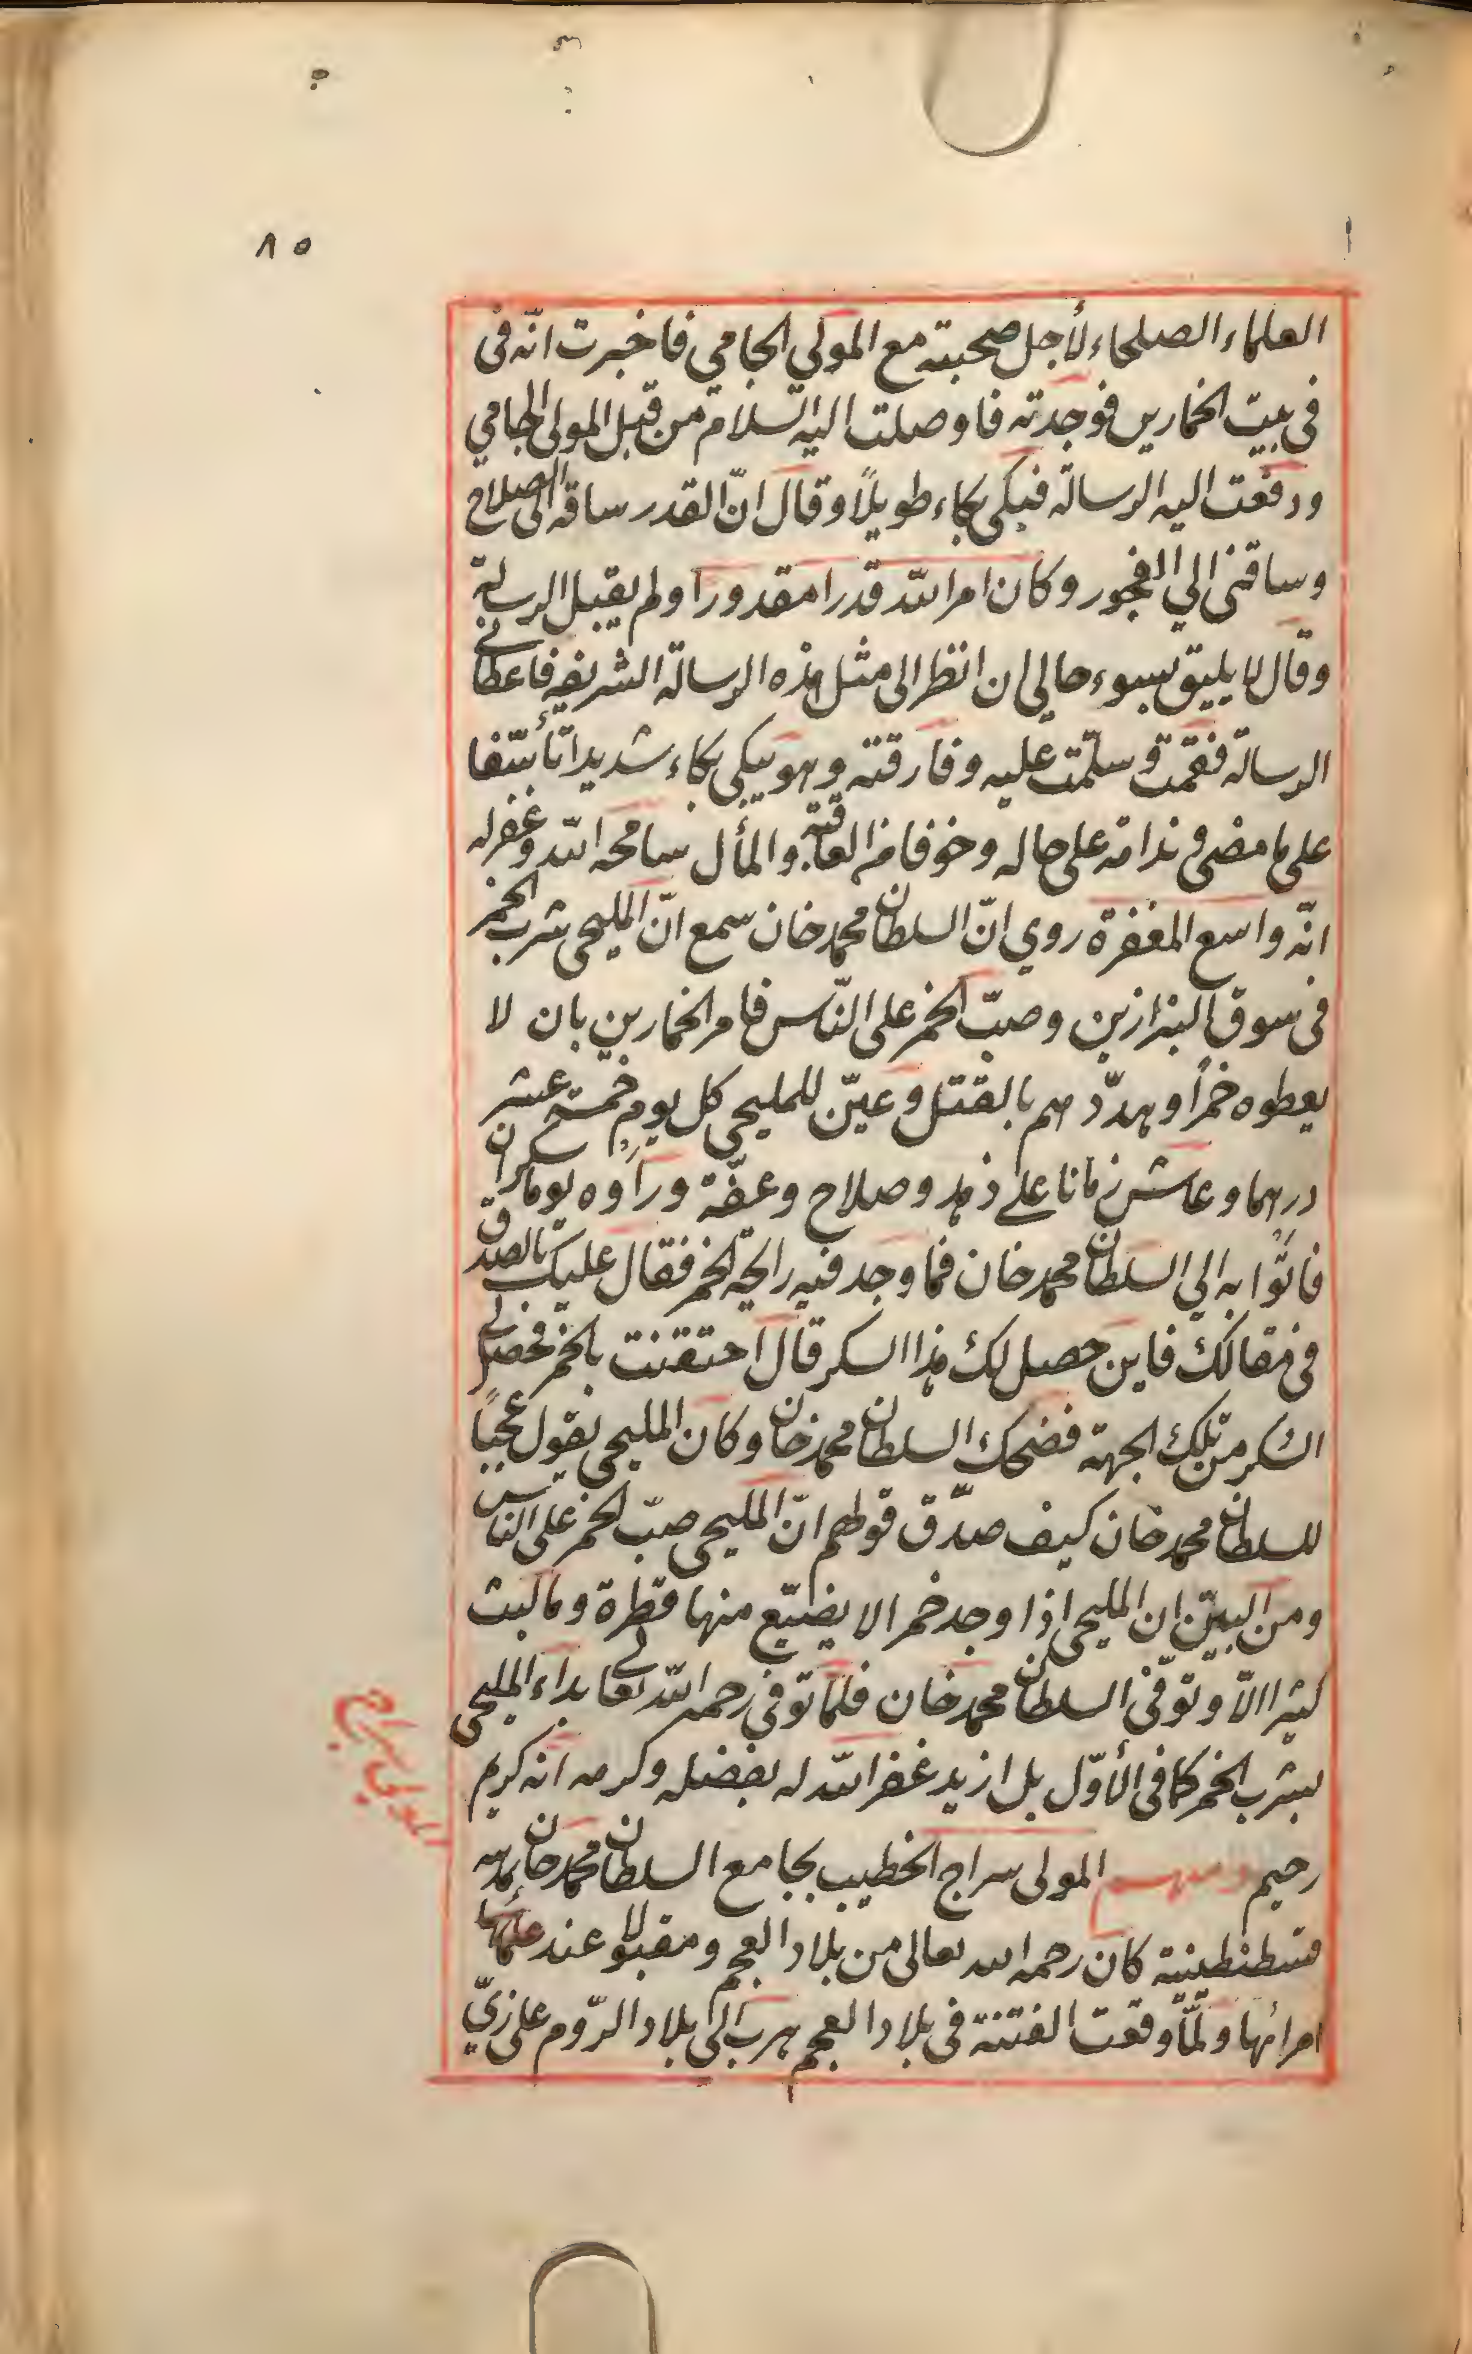 ٨٥
العلماء الصلحاء لأجل صحبته مع المولى الجامي فاخبرت انّه فى
فى بيت الخمارين فوجدته فاوصلت اليه السّلام من قبل المولى الجامي
ودفعت اليه الرسالة فبكى بكاء طويلاً وقال انّ القدر ساقه الى الصلاح
وساقنى الي الفجور وكان امر الله قدرا مقدورا ولم يقبل الرسالة
وقال لا يليق بسوء حالي ان انظر الى مثل هذه الرسالة الشريفه فاعطانى
الرسالة فقمت وسلّمت عليه وفارقته وهو يبكى بكاء شديدا تأسّفا
على ما مضى فى ندامة على حاله وخوفا من العاقبة والمأل سامحه الله وغفر له
انّه واسع المغفرة روي انّ السلطان محمد خان سمع انّ المليحى شرب الخمر
فى سوق البزازين وصبّ الخمر على النّاس فامر الخمارين بان لا
يعطوه خمراً وهدّدهم بالقتل وعيّن للمليحى كل يوم خمسة عشر
درهما وعاش زمانا على زهد وصلاح وعفّة وراوه يوما سكران
فاتوا به الي السلطان محمد خان فما وجد فيه رايحة الخمر فقال عليك بالصدق
فى مقالك فاين حصل لك هذا السكر قال احتقنت بالخمر فحصل لى
السكر من تلك الجهة فضحك السلطان محمد خان وكان المليحى يقول عجبًا
للسلطان محمد خان كيف صدّق قولهم انّ المليحى صبّ الخمر على الناس
ومن البيّن ان المليحى اذا وجد خمرا لا يضيّع منها قطرة وما لبث
كثيرا الاّ وتوفّى السلطان محمد خان فلمّا توفى رحمه الله تعالى بداء المليحى
بشرب الخمر كما فى الأوّل بل ازيد غفر الله له بفضله وكرمه انه كريم
رحيم ومنهم المولى سراج الخطيب بجامع السلطان محمد خان بمدينة
قسطنطينية كان رحمه الله تعالى من بلاد العجم ومقبولا عند علمائها
امرائها ولمّا وقعت الفتنة فى بلاد العجم هرب الي بلاد الرّوم على زيّ
المولى سراج